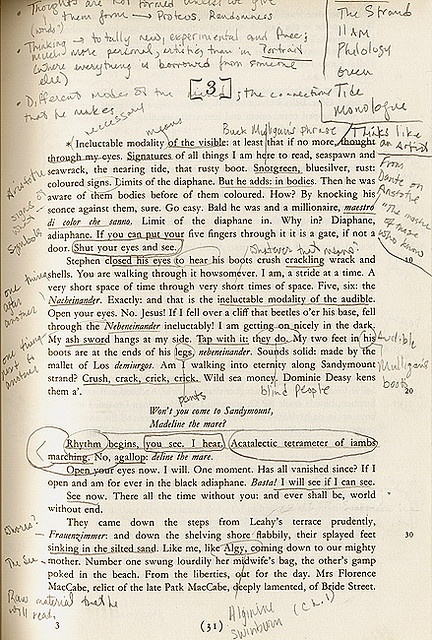 Thoughts are not formed unless we give
them form → Proteus. Randomness
(words)
Thinking → totally new, experimental and free;
much more personal, artistic than in Portrait
(where everything is borrowed from someone
else)
Different modes of the
; the connections
that he makes
The Strand
11 AM
Philology
Green
Tide
Monologue
[3]
necessary
means
Buck Mulligan's phrase
Thinks like
an Artist
*Ineluctable modality of the visible: at least that if no more, thought
through my eyes. Signatures of all things I am here to read, seaspawn and
seawrack, the nearing tide, that rusty boot. Snotgreen, bluesilver, rust:
coloured signs. Limits of the diaphane. But he adds: in bodies. Then he was
aware of them bodies before of them coloured. How? By knocking his
sconce against them, sure. Go easy. Bald he was and a millionaire, maestro
di color che sanno. Limit of the diaphane in. Why in? Diaphane,
adiaphane. If you can put your five fingers through it it is a gate, if not a
door. Shut your eyes and see.
From
Dante on
Aristotle
"The master
of those
who know
Aristotle
symbols
whatever that means
Stephen closed his eyes to hear his boots crush crackling wrack and
10
shells. You are walking through it howsomever. I am, a stride at a time. A
very short space of time through very short times of space. Five, six: the
Nacheinander. Exactly: and that is the ineluctable modality of the audible.
Open your eyes. No. Jesus! If I fell over a cliff that beetles o'er his base, fell
through the Nebeneinander ineluctably! I am getting on nicely in the dark.
My ash sword hangs at my side. Tap with it: they do. My two feet in his
boots are at the ends of his legs, nebeneinander. Sounds solid: made by the
mallet of Los demiurgos. Am I walking into eternity along Sandymount
strand? Crush, crack, crick, crick. Wild sea money. Dominie Deasy kens
them a'.
20
one thing
after
another
one thing
next to
another
Audible
Mulligan's
boots
pants
blind people
Won't you come to Sandymount,
Madeline the mare?
Rhythm begins, you see. I hear. Acatalectic tetrameter of iambs
marching. No, agallop: deline the mare.
Open your eyes now. I will. One moment. Has all vanished since? If I
open and am for ever in the black adiaphane. Basta! I will see if I can see.
See now. There all the time without you: and ever shall be, world
without end.
They came down the steps from Leahy's terrace prudently,
Frauenzimmer: and down the shelving shore flabbily, their splayed feet
30
sinking in the silted sand. Like me, like Algy, coming down to our mighty
mother. Number one swung lourdily her midwife's bag, the other's gamp
poked in the beach. From the liberties, out for the day. Mrs Florence
MacCabe, relict of the late Patk MacCabe, deeply lamented, of Bride Street.
The Sea
Raw material that he
will read
Algernon
Swinburn
(Ch. 1)
3
(31)